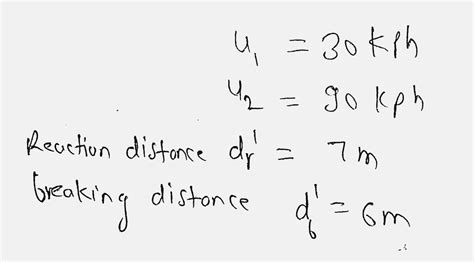 u₁ = 30 kph
u₂ = 90 kph
Reaction distance dᵣ' = 7m
breaking distance d_b' = 6m